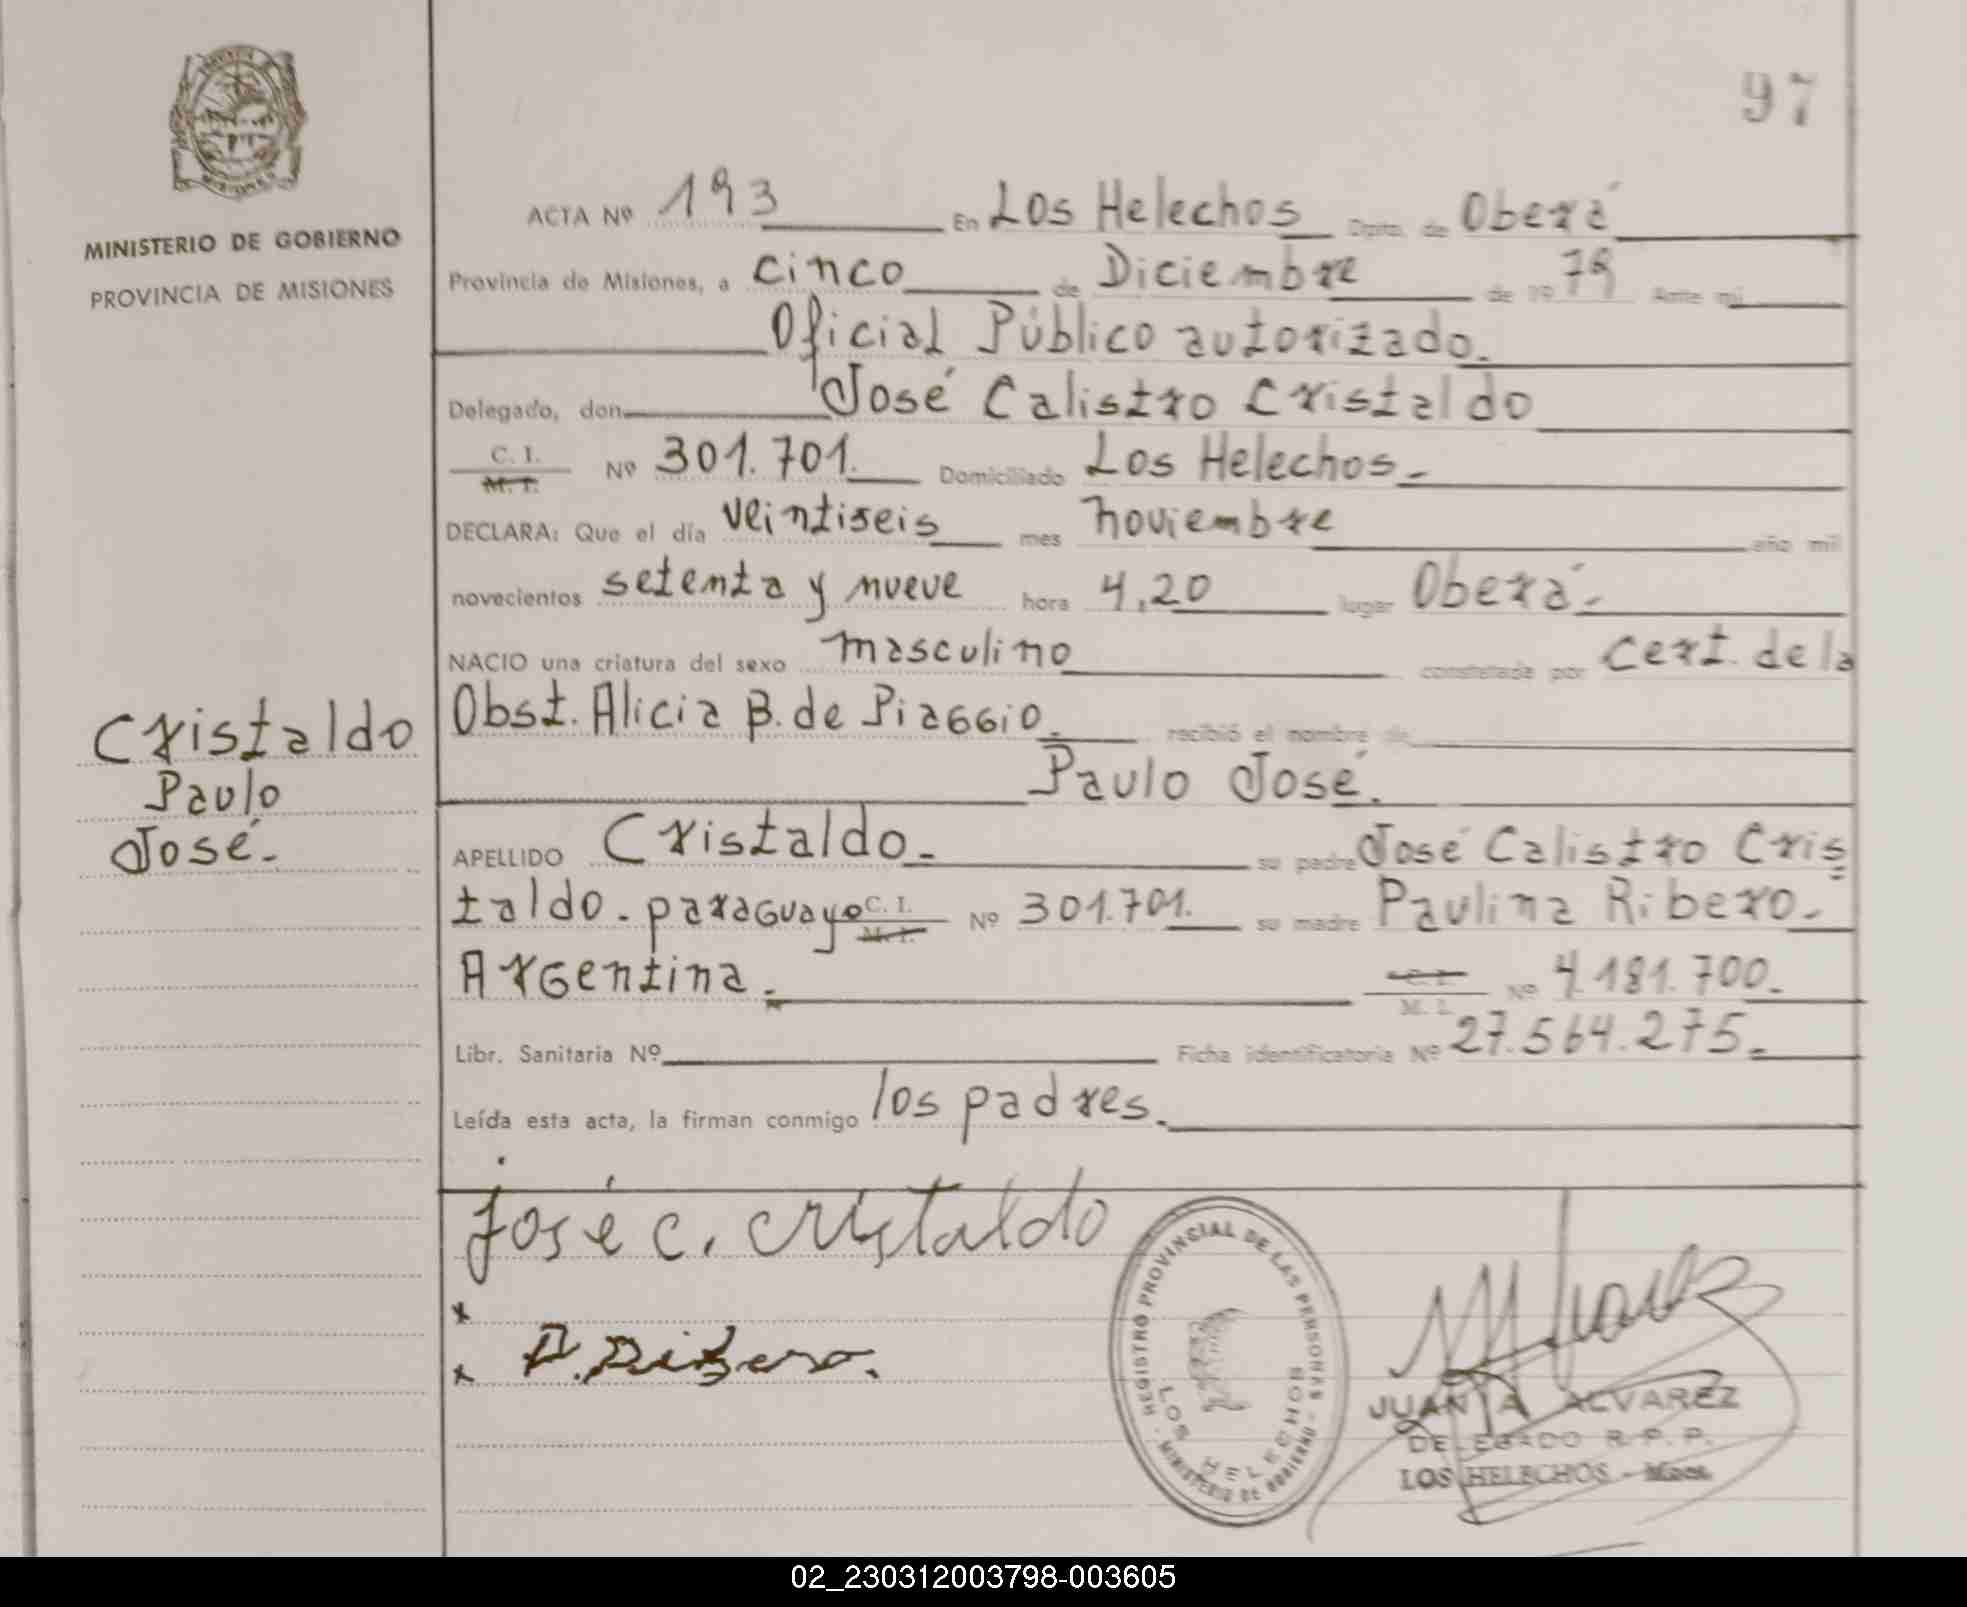 97
MINISTERIO DE GOBIERNO
PROVINCIA DE MISIONES
Cristaldo
Paulo
José.-
ACTA Nº 193 En Los Helechos Dpto. de Oberá
Provincia de Misiones, a cinco de Diciembre de 19 79 Ante mí
Oficial Público autorizado.
Delegado, don José Calistro Cristaldo
C. I. M. I. Nº 301.701. Domiciliado Los Helechos.-
DECLARA: Que el día veintiseis mes noviembre año mil
novecientos setenta y nueve hora 4,20 lugar Oberá.-
NACIO una criatura del sexo masculino constatada por Cert. de la
Obst. Alicia B. de Piaggio. recibió el nombre de
Paulo José.
APELLIDO Cristaldo.- su padre José Calistro Cris
taldo. paraguayo C. I. M. I. Nº 301.701. su madre Paulina Ribero.-
Argentina.- C. I. M. I. Nº 4.181.700.
Libr. Sanitaria Nº Ficha identificatoria Nº 27.564.275.-
Leída esta acta, la firman conmigo los padres.-
José C. Cristaldo
x
x P. Ribero.
REGISTRO PROVINCIAL DE LAS PERSONAS - MINISTERIO DE GOBIERNO -
LOS HELECHOS
JUAN A. ALVAREZ
DELEGADO R. P. P.
LOS HELECHOS - Mnes.
02_230312003798-003605